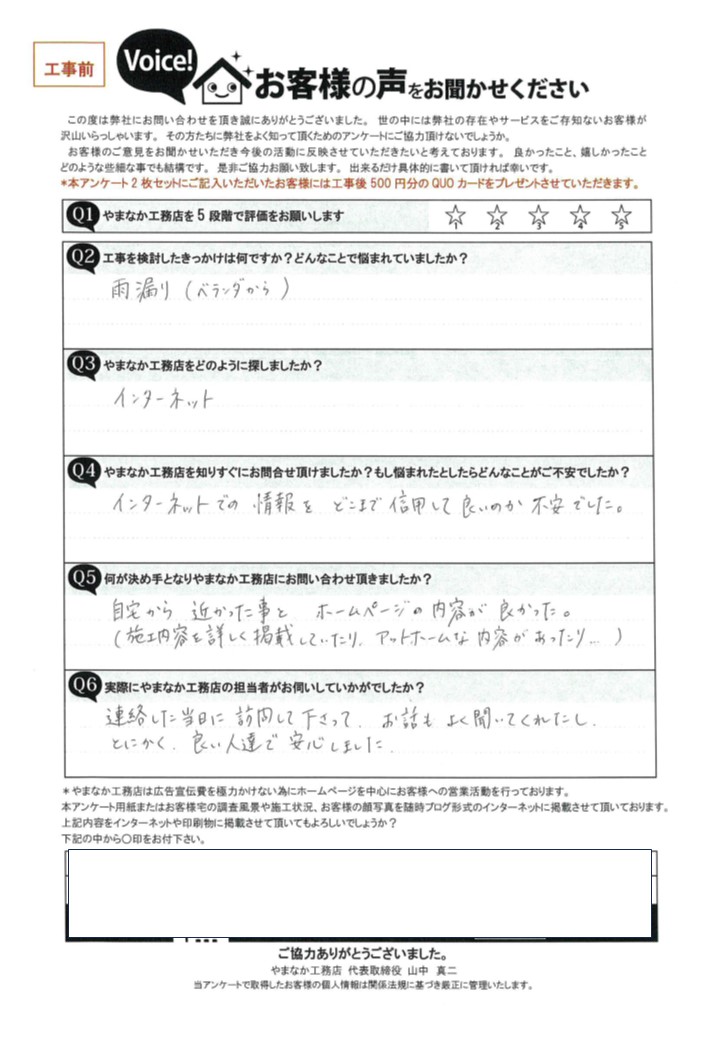 工事前
Voice!
お客様の声をお聞かせください
この度は弊社にお問い合わせを頂き誠にありがとうございました。 世の中には弊社の存在やサービスをご存知ないお客様が
沢山いらっしゃいます。 その方たちに弊社をよく知って頂くためのアンケートにご協力頂けないでしょうか。
お客様のご意見をお聞かせいただき今後の活動に反映させていただきたいと考えております。 良かったこと、嬉しかったこと
どのような些細な事でも結構です。 是非ご協力お願い致します。 出来るだけ具体的に書いて頂ければ幸いです。
*本アンケート2枚セットにご記入いただいたお客様には工事後500円分のQUOカードをプレゼントさせていただきます。
Q1 やまなか工務店を5段階で評価をお願いします
1 2 3 4 5
Q2 工事を検討したきっかけは何ですか？どんなことで悩まれていましたか？
雨漏り（ベランダから）
Q3 やまなか工務店をどのように探しましたか？
インターネット
Q4 やまなか工務店を知りすぐにお問合せ頂けましたか？もし悩まれたとしたらどんなことがご不安でしたか？
インターネットでの 情報を どこまで 信用して 良いのか 不安でした。
Q5 何が決め手となりやまなか工務店にお問い合わせ頂きましたか？
自宅から 近かった事と ホームページの内容が 良かった。
（施工内容を詳しく掲載していたり、アットホームな 内容があったり… ）
Q6 実際にやまなか工務店の担当者がお伺いしていかがでしたか？
連絡した当日に 訪問して下さって、お話も よく聞いてくれたし、
とにかく、良い人達で 安心しました。
＊やまなか工務店は広告宣伝費を極力かけない為にホームページを中心にお客様への営業活動を行っております。
本アンケート用紙またはお客様宅の調査風景や施工状況、お客様の顔写真を随時ブログ形式のインターネットに掲載させて頂いております。
上記内容をインターネットや印刷物に掲載させて頂いてもよろしいでしょうか？
下記の中から〇印をお付下さい。
ご協力ありがとうございました。
やまなか工務店 代表取締役 山中 真二
当アンケートで取得したお客様の個人情報は関係法規に基づき厳正に管理いたします。